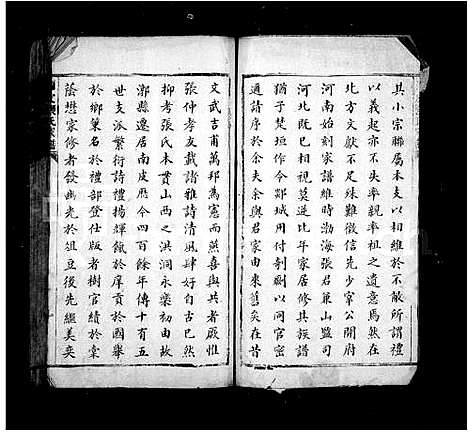 其小宗聯屬本支以相維於不敝所謂禮
以義起亦不失率親率祖之遺意焉然在
北方文獻不足殊難徵信先少宰公開府
河南始刻家譜維時渤海張君兼山鹽司
河北既已相莫逆比年家居修其族譜
猶子楚垣作令鄴城用付剞劂以同官密
通請序於余夫余與君家由來舊矣在昔
文武吉甫萬邦為憲而燕喜與共者厥惟
張仲孝友載諸雅詩清風肆好自古已然
抑考張氏本貫山西之洪洞永樂初由故
漷縣遷居南皮歷今四百餘年傳十有五
世支派繁衍詩禮揚輝飲於庠貢於國舉
於鄉策名於禮部登仕版者樹官績於棠
蔭懋家修者發幽光於俎豆後先繼美奕